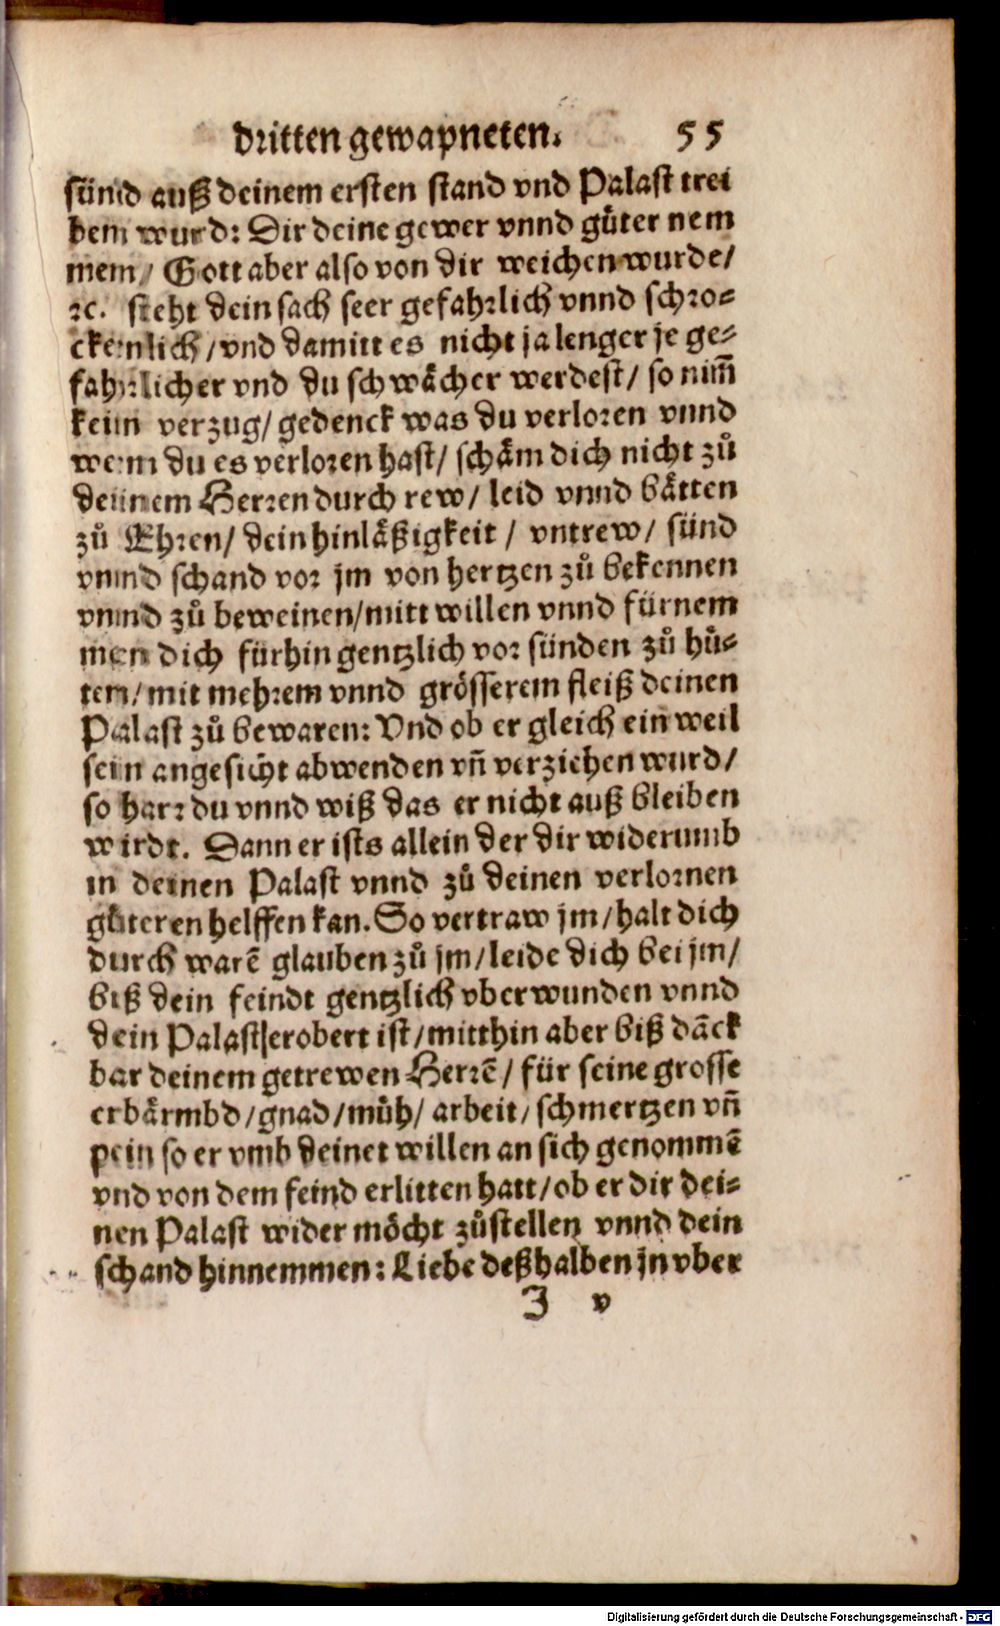 dritten gewapneten. 55
sünd auß deinem ersten stand vnd Palast trei
ben wurd: Dir deine gewer vnnd gůter nem
men/ Gott aber also von dir weichen wurde/
ꝛc. steht dein sach seer gefahrlich vnnd schro-
ckenlich/ vnd damitt es nicht ja lenger je ge-
fahrlicher vnd du schwächer werdest/ so nim̃
kein verzug/ gedenck was du verloren vnnd
wem du es verloren hast/ schäm dich nicht zů
deinem Herren durch rew/ leid vnnd bätten
zů Ehren/ dein hinläßigkeit/ vntrew/ sünd
vnnd schand vor jm von hertzen zů bekennen
vnnd zů beweinen/ mitt willen vnnd fürnem
men dich fürhin gentzlich vor sünden zů hů-
ten/ mit mehrem vnnd grösserem fleiß deinen
Palast zů bewaren: Vnd ob er gleich ein weil
sein angesicht abwenden vñ verziehen wurd/
so harr du vnnd wiß das er nicht auß bleiben
wirdt. Dann er ists allein der dir widerumb
in deinen Palast vnnd zů deinen verlornen
gůteren helffen kan. So vertraw jm/ halt dich
durch warẽ glauben zů jm/ leide dich bei jm/
biß dein feindt gentzlich vberwunden vnnd
dein Palast erobert ist/ mitthin aber biß dãck
bar deinem getrewen Herrẽ/ für seine grosse
erbärmbd/ gnad/ můh/ arbeit/ schmertzen vñ
pein so er vmb deinet willen an sich genommẽ
vnd von dem feind erlitten hatt/ ob er dir dei-
nen Palast wider möcht zůstellen vnnd dein
schand hinnemmen: Liebe deßhalben jn vber
J v
Digitalisierung gefördert durch die Deutsche Forschungsgemeinschaft - DFG